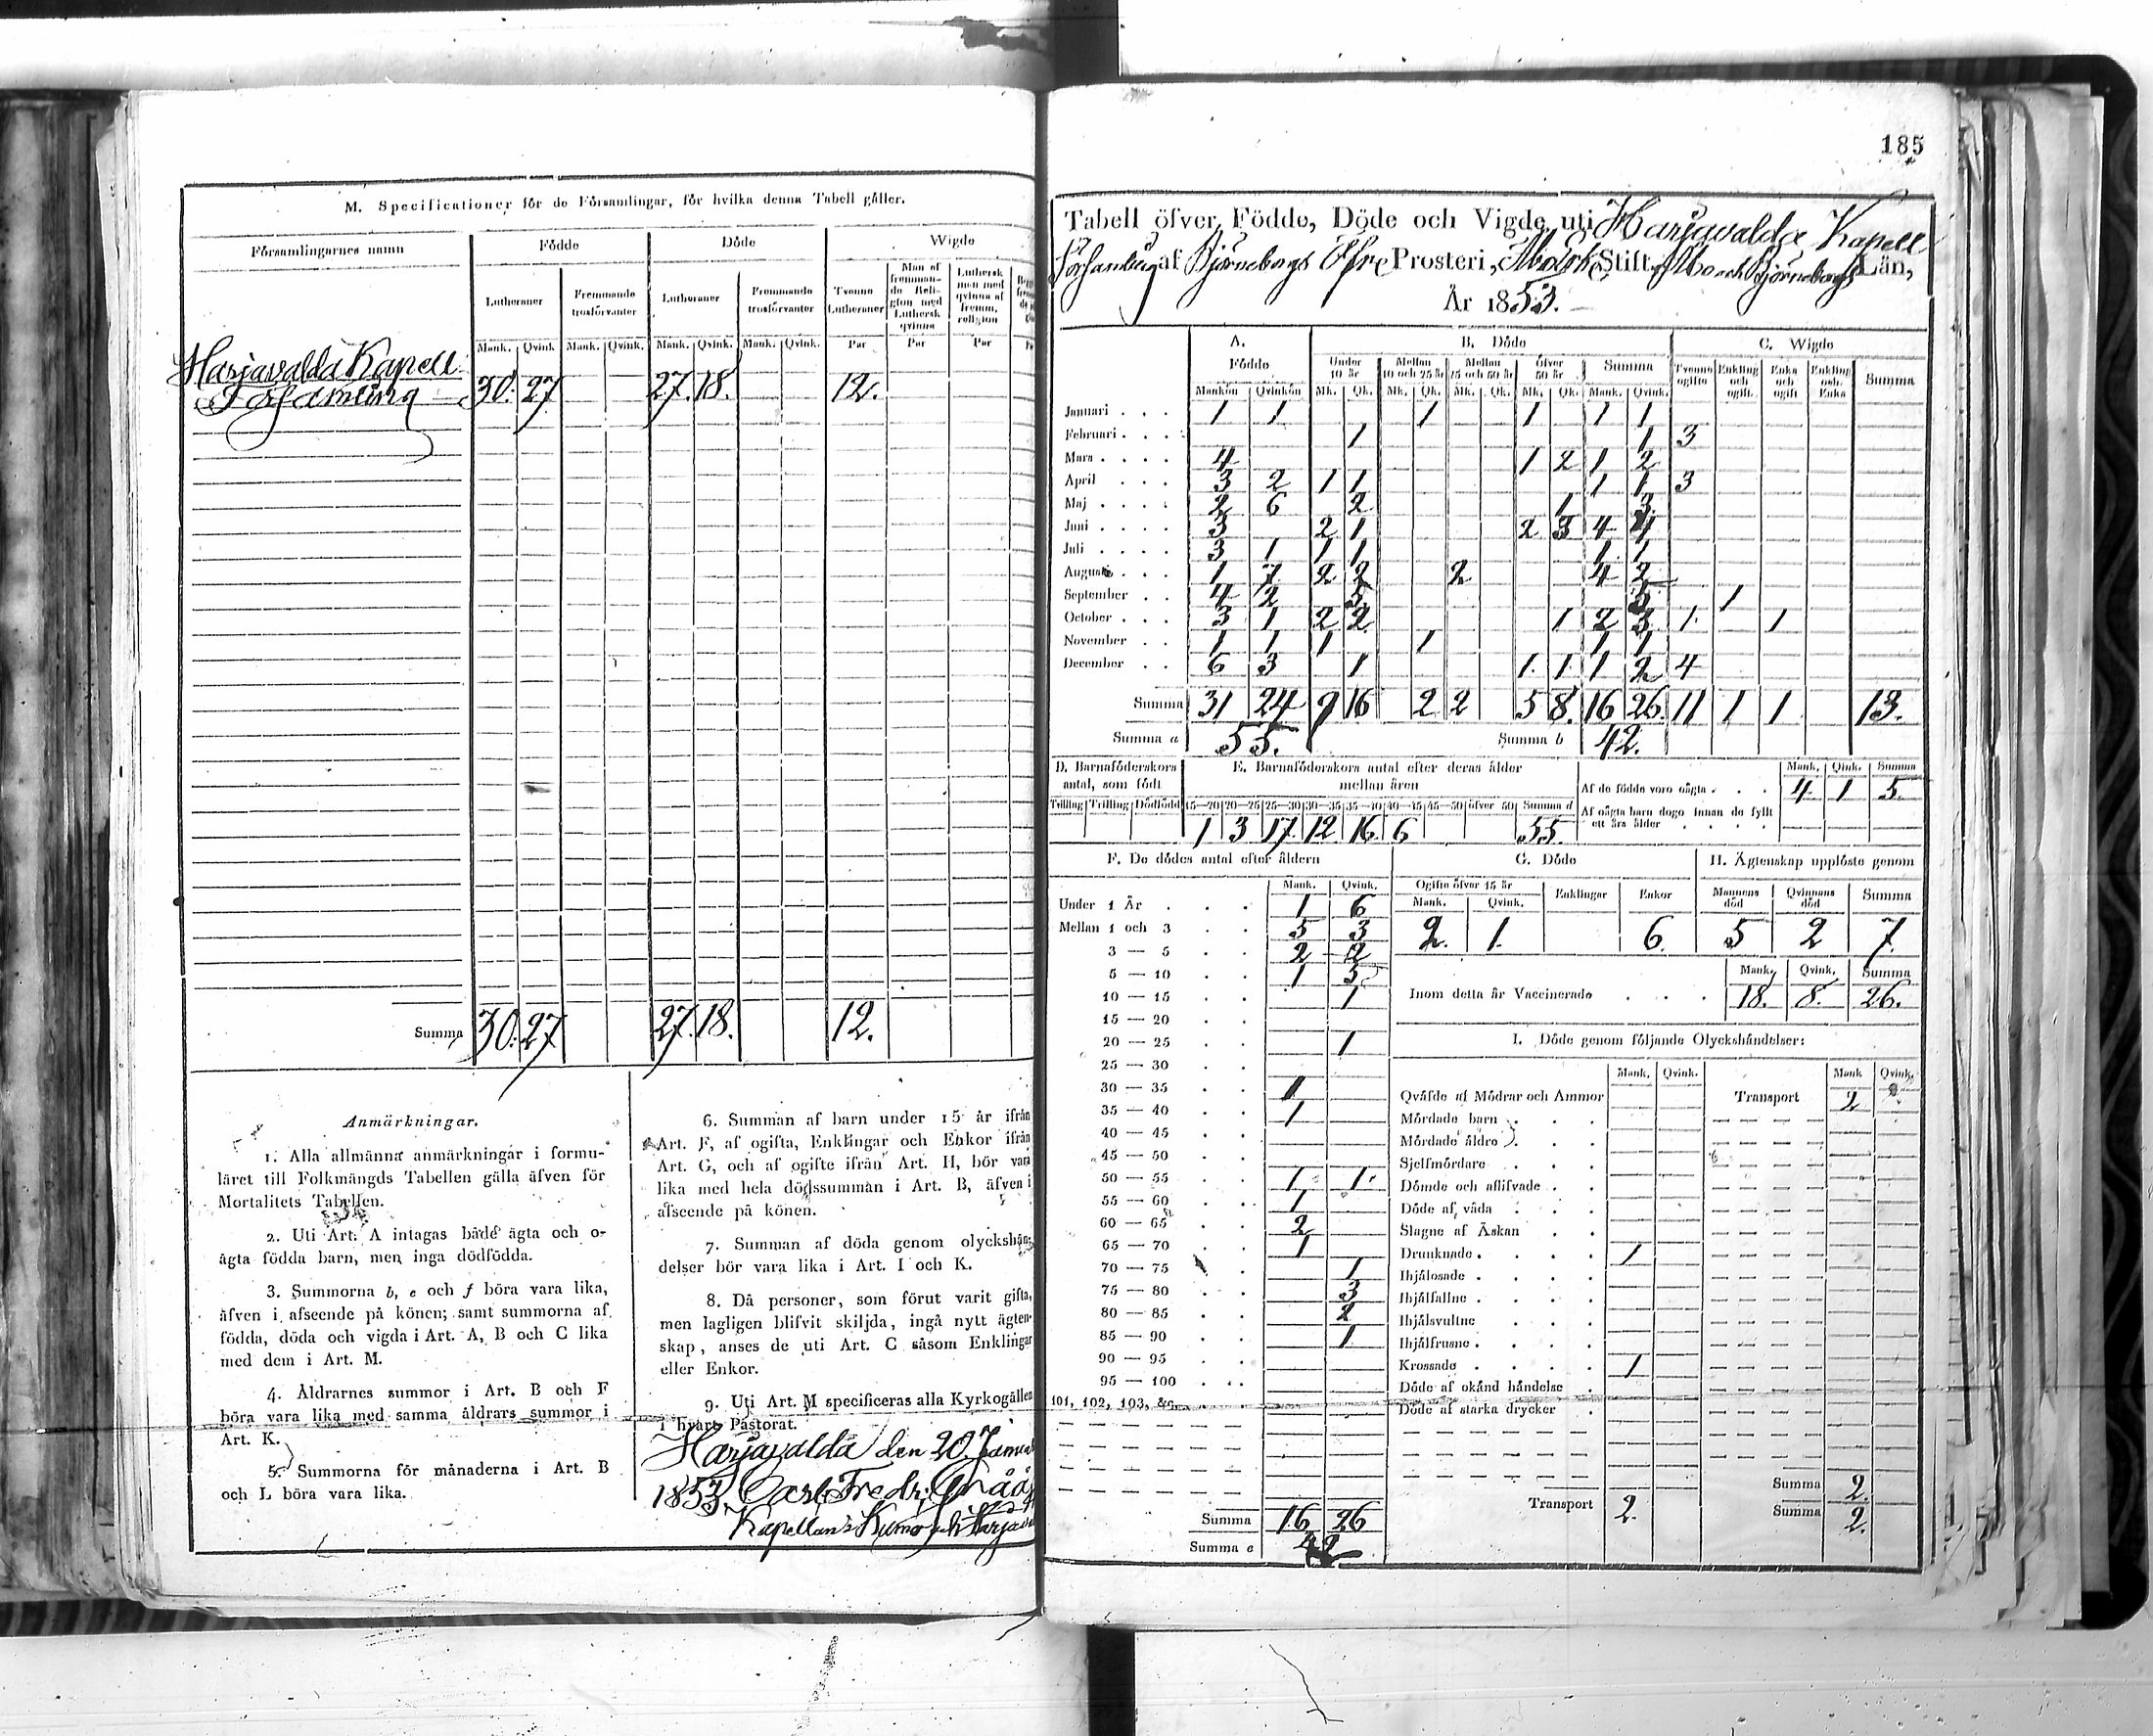 M. Specificationer för de Församlingar, för hvilka denna Tabell gäller.
Församlingarnes namn
Födde
Döde
Wigde
Lutheraner
Fremmande trosförvanter
Lutheraner
Fremmande trosförvanter
Tvenne Lutheraner
Man af fremmande Religion med Luthersk qvinna
Luthersk man med qvinna af fremm. religion
Mank. Qvink. Mank. Qvink. Mank. Qvink. Mank. Qvink. Par Par Par
Harjavalda Kapell
Församling 30. 27 27. 18. 12.
Summa 30. 27 27. 18. 12.
Anmärkningar.
1. Alla allmänna anmärkningar i formu-
läret till Folkmängds Tabellen gälla äfven för
Mortalitets Tabellen.
2. Uti Art. A intagas både ägta och o-
ägta födda barn, men inga dödfödda.
3. Summorna b, e och f böra vara lika,
äfven i afseende på könen; samt summorna af
födda, döda och vigda i Art. A, B och C lika
med dem i Art. M.
4. Åldrarnes summor i Art. B och F
böra vara lika med samma åldrars summor i
Art. K.
5. Summorna för månaderna i Art. B
och L böra vara lika.
6. Summan af barn under 15 år ifrån
Art. F, af ogifta, Enklingar och Enkor ifrån
Art. G, och af ogifte ifrån Art. H, bör vara
lika med hela dödssumman i Art. B, äfven i
afseende på könen.
7. Summan af döda genom olyckshän-
delser bör vara lika i Art. I och K.
8. Då personer, som förut varit gifta,
men lagligen blifvit skiljda, ingå nytt ägten-
skap, anses de uti Art. C såsom Enklingar
eller Enkor.
9. Uti Art. M specificeras alla Kyrkogällen
i hvart Pastorat.
Harjavalda den 20 Januari
1853. Carl Fredr.
Kapellan i Kumo och Harjavalda
185
Tabell öfver Födde, Döde och Vigde uti Harjavalda Kapell
Församling af Björneborgs Öfre Prosteri, Åbo Erke Stift, Åbo och Björneborgs Län,
År 1853.
A. Födde
B. Döde
C. Wigde
Under 10 år
Mellan 10 och 25 år
Mellan 25 och 50 år
Öfver 50 år
Summa
Tvenne ogifte
Enkling och ogift.
Enka och ogift
Enkling och Enka
Summa
Mankön Qvinkön Mk. Qk. Mk. Qk. Mk. Qk. Mk. Qk. Mank. Qvink.
Januari 1 1 1 1 1 1
Februari 1 1 3
Mars 4 1 2 1 2
April 3 2 1 1 1 1 3
Maj 2 6 2 1 3
Juni 3 2 1 2 3 4 4
Juli 3 1 1 1 1 1
Augusti 1 7 2 2 2 4 2
September 4 2 5 5 1
October 3 1 2 2 1 2 3 1 1
November 1 1 1 1 1 1
December 6 3 1 1 1 1 2 4
Summa 31 24 9 16 2 2 5 8. 16 26. 11 1 1 13.
Summa a 55. Summa b 42.
D. Barnaföderskors antal, som födt
E. Barnaföderskors antal efter deras ålder mellan åren
Tvilling Trilling Dödfödd 15—20 20—25 25—30 30—35 35—40 40—45 45—50 öfver 50 Summa d
1 3 17. 12 16 6 55.
Mank. Qink. Summa
Af de födde voro oägta 4 1 5.
Af oägta barn dogo innan de fyllt
ett års ålder
F. De dödes antal efter åldern
Mank. Qvink.
Under 1 År 1 6
Mellan 1 och 3 5 3
3 — 5 2 2
5 — 10 1 5
10 — 15 1
15 — 20
20 — 25 1
25 — 30
30 — 35 1
35 — 40 1
40 — 45
45 — 50
50 — 55 1 1
55 — 60 1
60 — 65 2
65 — 70 1
70 — 75 1
75 — 80 3
80 — 85 2
85 — 90 1
90 — 95
95 — 100
101, 102, 103, &c.
Summa 16 26
Summa e 42
G. Döde
Ogifte öfver 15 år
Mank. Qvink.
Enklingar
Enkor
2. 1. 6.
H. Ägtenskap upplöste genom
Mannens död
Qvinnans död
Summa
5 2 7.
Mank. Qvink. Summa
Inom detta år Vaccinerade 18. 8. 26.
I. Döde genom följande Olyckshändelser:
Mank. Qvink. Mank Qvink.
Qväfde af Mödrar och Ammor
Mördade barn
Mördade äldre
Sjelfmördare
Dömde och aflifvade
Döde af våda
Slagne af Åskan
Drunknade 1
Ihjälosade
Ihjälfallne
Ihjälsvultne
Ihjälfrusne
Krossade 1
Döde af okänd händelse
Döde af starka drycker
Transport 2.
Transport 2
Summa 2.
Summa 2.